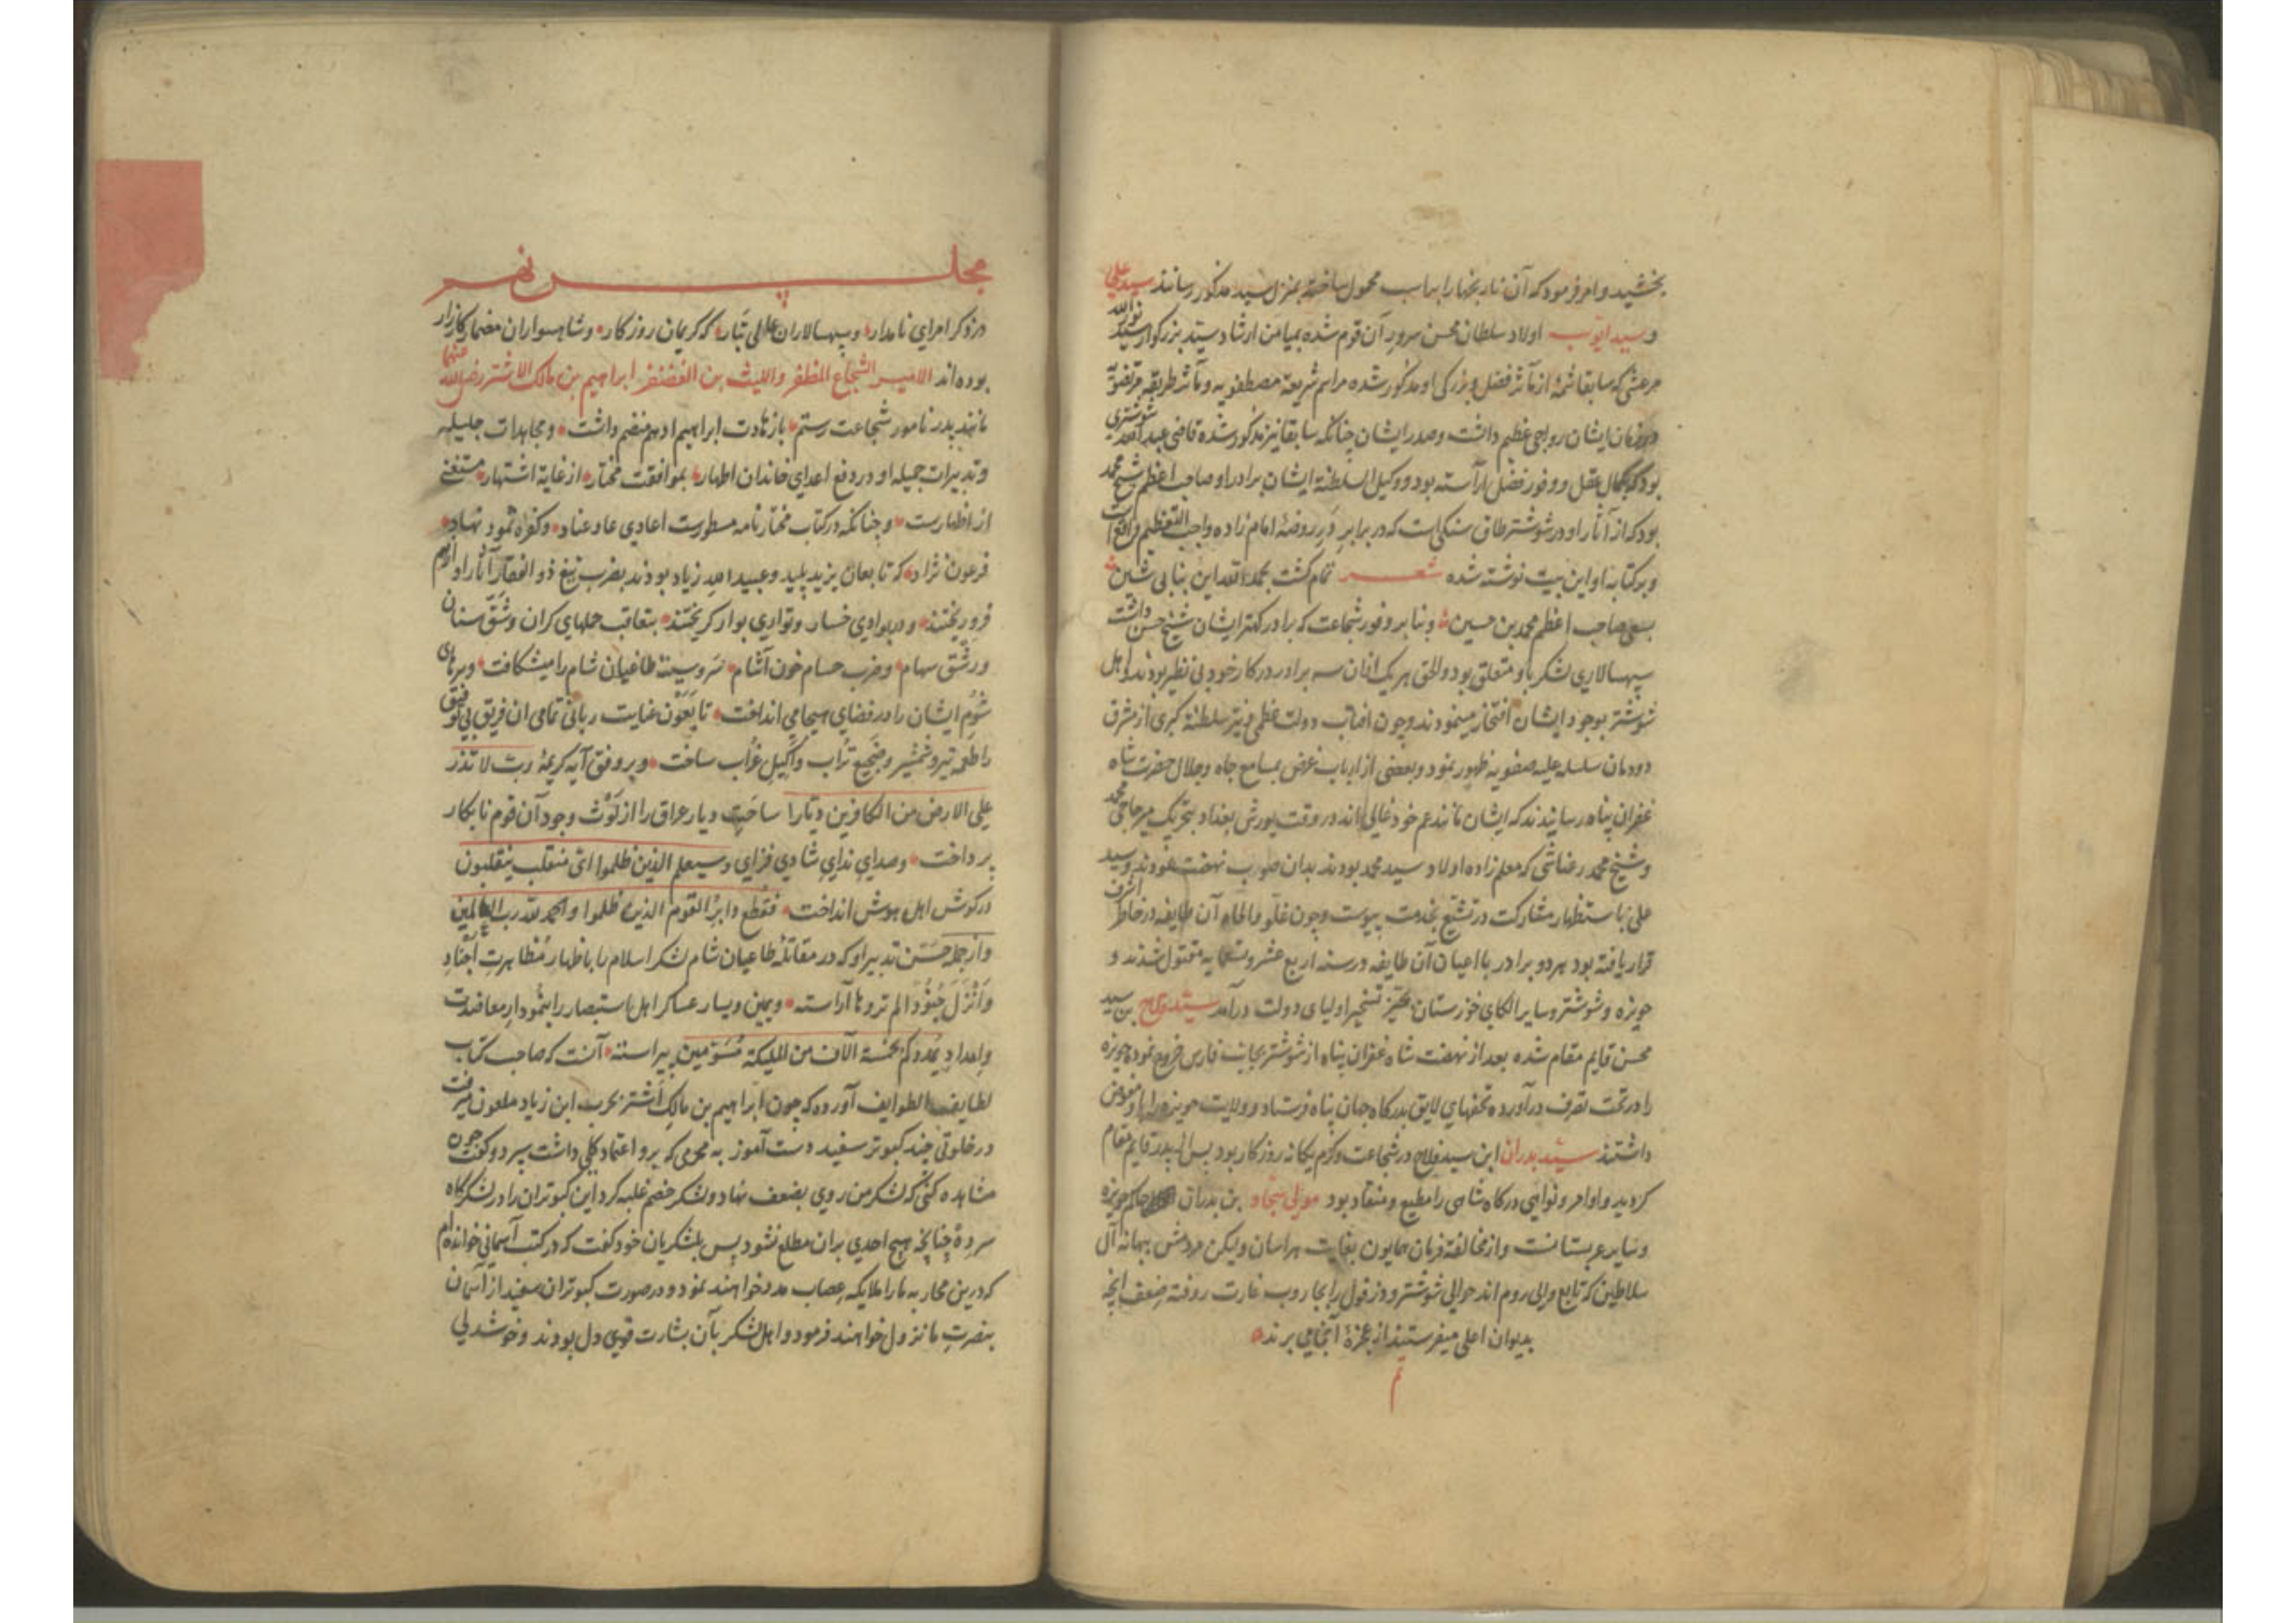 بخشید و امر فرمود که آن نار بخهار ابر اسب محمول ساخته بمنزل سید مذکور رسانند سید علی
و سید ایوب اولاد سلطان محسن سرور آن قوم شده بمیامن ارشاد سید بزرگوار سید نورالله
مرعشی که سابقا شمهٔ از مآثر فضل و بزرکی او مذکور شده مراسم شریعهٔ مصطفویه و مآثر طریقهٔ مرتضویه
در زمان ایشان رواجی عظیم داشت و صدر ایشان چنانکه سابقا نیز مذکور شده قاضی عبدالله شوشتری
بود که بکمال عقل و وفور فضل آراسته بود و وکیل السلطنهٔ ایشان برادر او صاحب اعظم شیخ محمد
بود که از آثار او در شوشتر طاق سنکی است که در برابر در روضهٔ امام زاده واجب التعظیم واقع است
و بر کتابه او این بیت نوشته شده شعر تمام کشت بحمدالله این بنا بی شین
بسعی صاحب اعظم محمد بن حسین و بنابر وفور شجاعت که برادر کهتر ایشان شیخ حسن داشت
سپهسالاری لشکر باو متعلق بود و الحق هر یک ازان سه برادر در کار خود بی نظیر بودند و اهل
شوشتر بوجود ایشان افتخار مینمودند و چون افتاب دولت عظمی و نیر سلطنة کبری از مشرق
دودمان سلسله علیه صفویه ظهور نمود و بعضی از ارباب غرض بمسامع جاه و جلال حضرت شاه
غفران پناه رسانیدند که ایشان مانند عم خود غالی اند در وقت یورش بغداد بتحریک میر حاجی محمد
و شیخ محمد رعناشی که معلم زاده اولاد سید محمد بودند بدان صوب نهضت نمودند و سید
علی باستظهار مشارکت در تشیع بخدمت پیوست و چون غلو و الحاد آن طایفه در خاطر اشرف
قرار یافته بود هر دو برادر با اعیان آن طایفه در سنه اربع عشر و تسعمایه مقتول شدند و
حویزه و شوشتر و سایر الکای خوزستان بحیّز تسخیر اولیای دولت درآمد سید فلاح بن سید
محسن قایم مقام شده بعد از نهضت شاه غفران پناه از شوشتر بجانب فارس خروج نموده حویزه
را در تحت تصرف درآورده تحفهای لایق بدرکاه جهان پناه فرستاد و ولایت حویزه را باو مفوض
داشتند سید بدران ابن سید فلاح در شجاعت و کرم یکانه روزکار بود پس از پدر قایم مقام
کردید و اوامر و نواهی درکاه شاهی را مطیع و منقاد بود مولی سجاد بن بدران حاکم حویزه
و سایر عربستانست و از مخالفة فرمان همایون بغایت هراسان ولیکن مردمش ببهانه آل
سلاطین که تابع والی روم اند حوالی شوشتر و دزفول را بجاروب غارت روفته ضعف انچه
بدیوان اعلی میفرستند از عجزهٔ آنجا می برند
تم
مجلس نهم
در ذکر امرای نامدار و سپهسالاران عالی تبار که کریمان روزکار و شاهسواران مضمار کارزار
بوده اند الامیر الشجاع المظفر واللیث بن الغضنفر ابراهیم بن مالک الاشتر رضی الله عنهما
مانند پدر نامور شجاعت رستم با زهادت ابراهیم ادهم منضم داشت و مجاهدات جلیله
و تدبیرات جمیله او در دفع اعدای خاندان اطهار بموافقت مختار از غایة اشتهار مستغنی
از اظهارست و چنانکه در کتاب مختارنامه مسطورست اعادی عاد عناد و کفرهٔ ثمود نهاد
فرعون نژاد که تابعان یزید پلید و عبیدالله زیاد بودند بضرب تیغ ذوالفقار آثار او از هم
فرو ریختند و در بوادی خسار و تواری بوار کریختند بتعاقب حملهای کران و شقّ سنان
و رشق سهام و ضرب حسام خون آشام سر و سینهٔ طاغیان شام را میشکافت و سرهای
شوم ایشان را در فضای هیجا می انداخت تا بعون عنایت ربانی تمامی ان فریق بی توفیق
را طعمه تیر و شمشیر و ضجیع تراب و اکیل غراب ساخت و بر وفق آیه کریمهٔ رب لا تذر
علی الارض من الکافرین دیارا ساحت دیار عراق را از لوث وجود آن قوم نابکار
پرداخت و صدای ندای شادی فزای و سیعلم الذین ظلموا ای منقلب ینقلبون
در کوش اهل هوش انداخت فقطع دابر القوم الذین ظلموا و الحمد لله رب العالمین
و از جمله حسن تدبیر او که در مقاتلهٔ طاغیان شام لشکر اسلام را باظهار مظاهرت اجناد
و انزل جنودا لم تروها آراسته و یمین و یسار عساکر اهل استبصار را بنمودار معاضدت
و امداد یمددکم بخمسة آلاف من الملیکة مسومین پیراسته آنست که صاحب کتاب
لطایف الطوایف آورده که چون ابراهیم بن مالک اشتر بحرب ابن زیاد ملعون میرفت
در خلوتی چند کبوتر سفید دست آموز به محرمی که برو اعتماد کلی داشت سپرد و کفت چون
مشاهده کنی که لشکر من روی بضعف نهاد و لشکر خصم غلبه کرد این کبوتران را در لشکرکاه
سر ده چنانچه هیچ احدی بران مطلع نشود پس بلشکریان خود کفت که در کتب آسمانی خوانده ام
که درین محاربه ما را ملایکه عصاب مدد خواهند نمود و در صورت کبوتران سفید از آسمان
بنصرت ما نزول خواهند فرمود و اهل لشکر بآن بشارت قوی دل بودند و خوشدلی